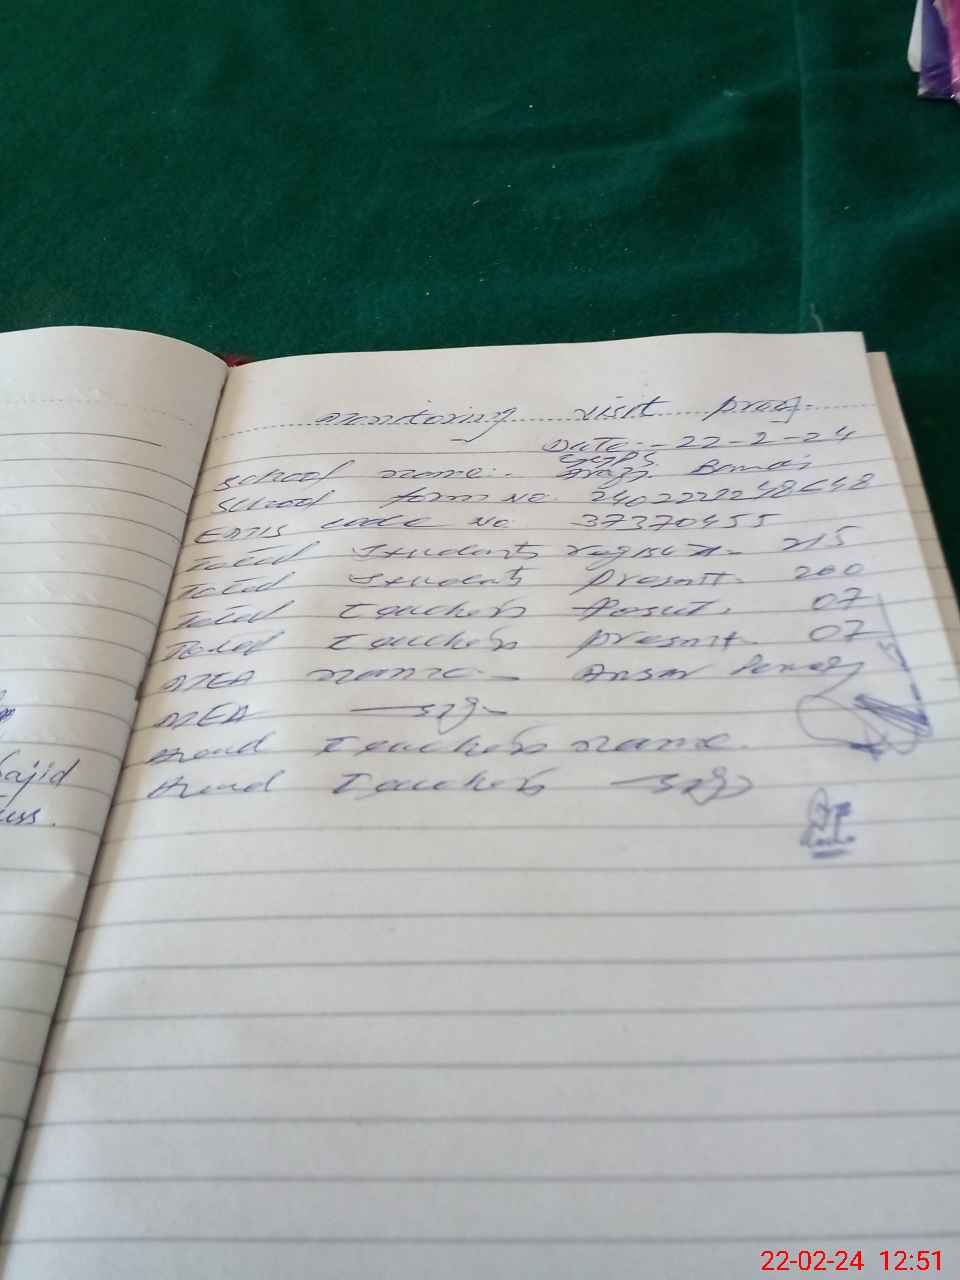 Monitoring visit proof.
Date:- 22-2-24
GGPS
School name:-
School form no.
EMIS code no 37370455
Total Students register. 215
Total Students present. 200
Total Teachers Posted. 07
Total Teachers present. 07
MEA name:- Ansar
MEA sig-
Head Teachers name.
Head Teachers sig
Sajid
22-02-24 12:51